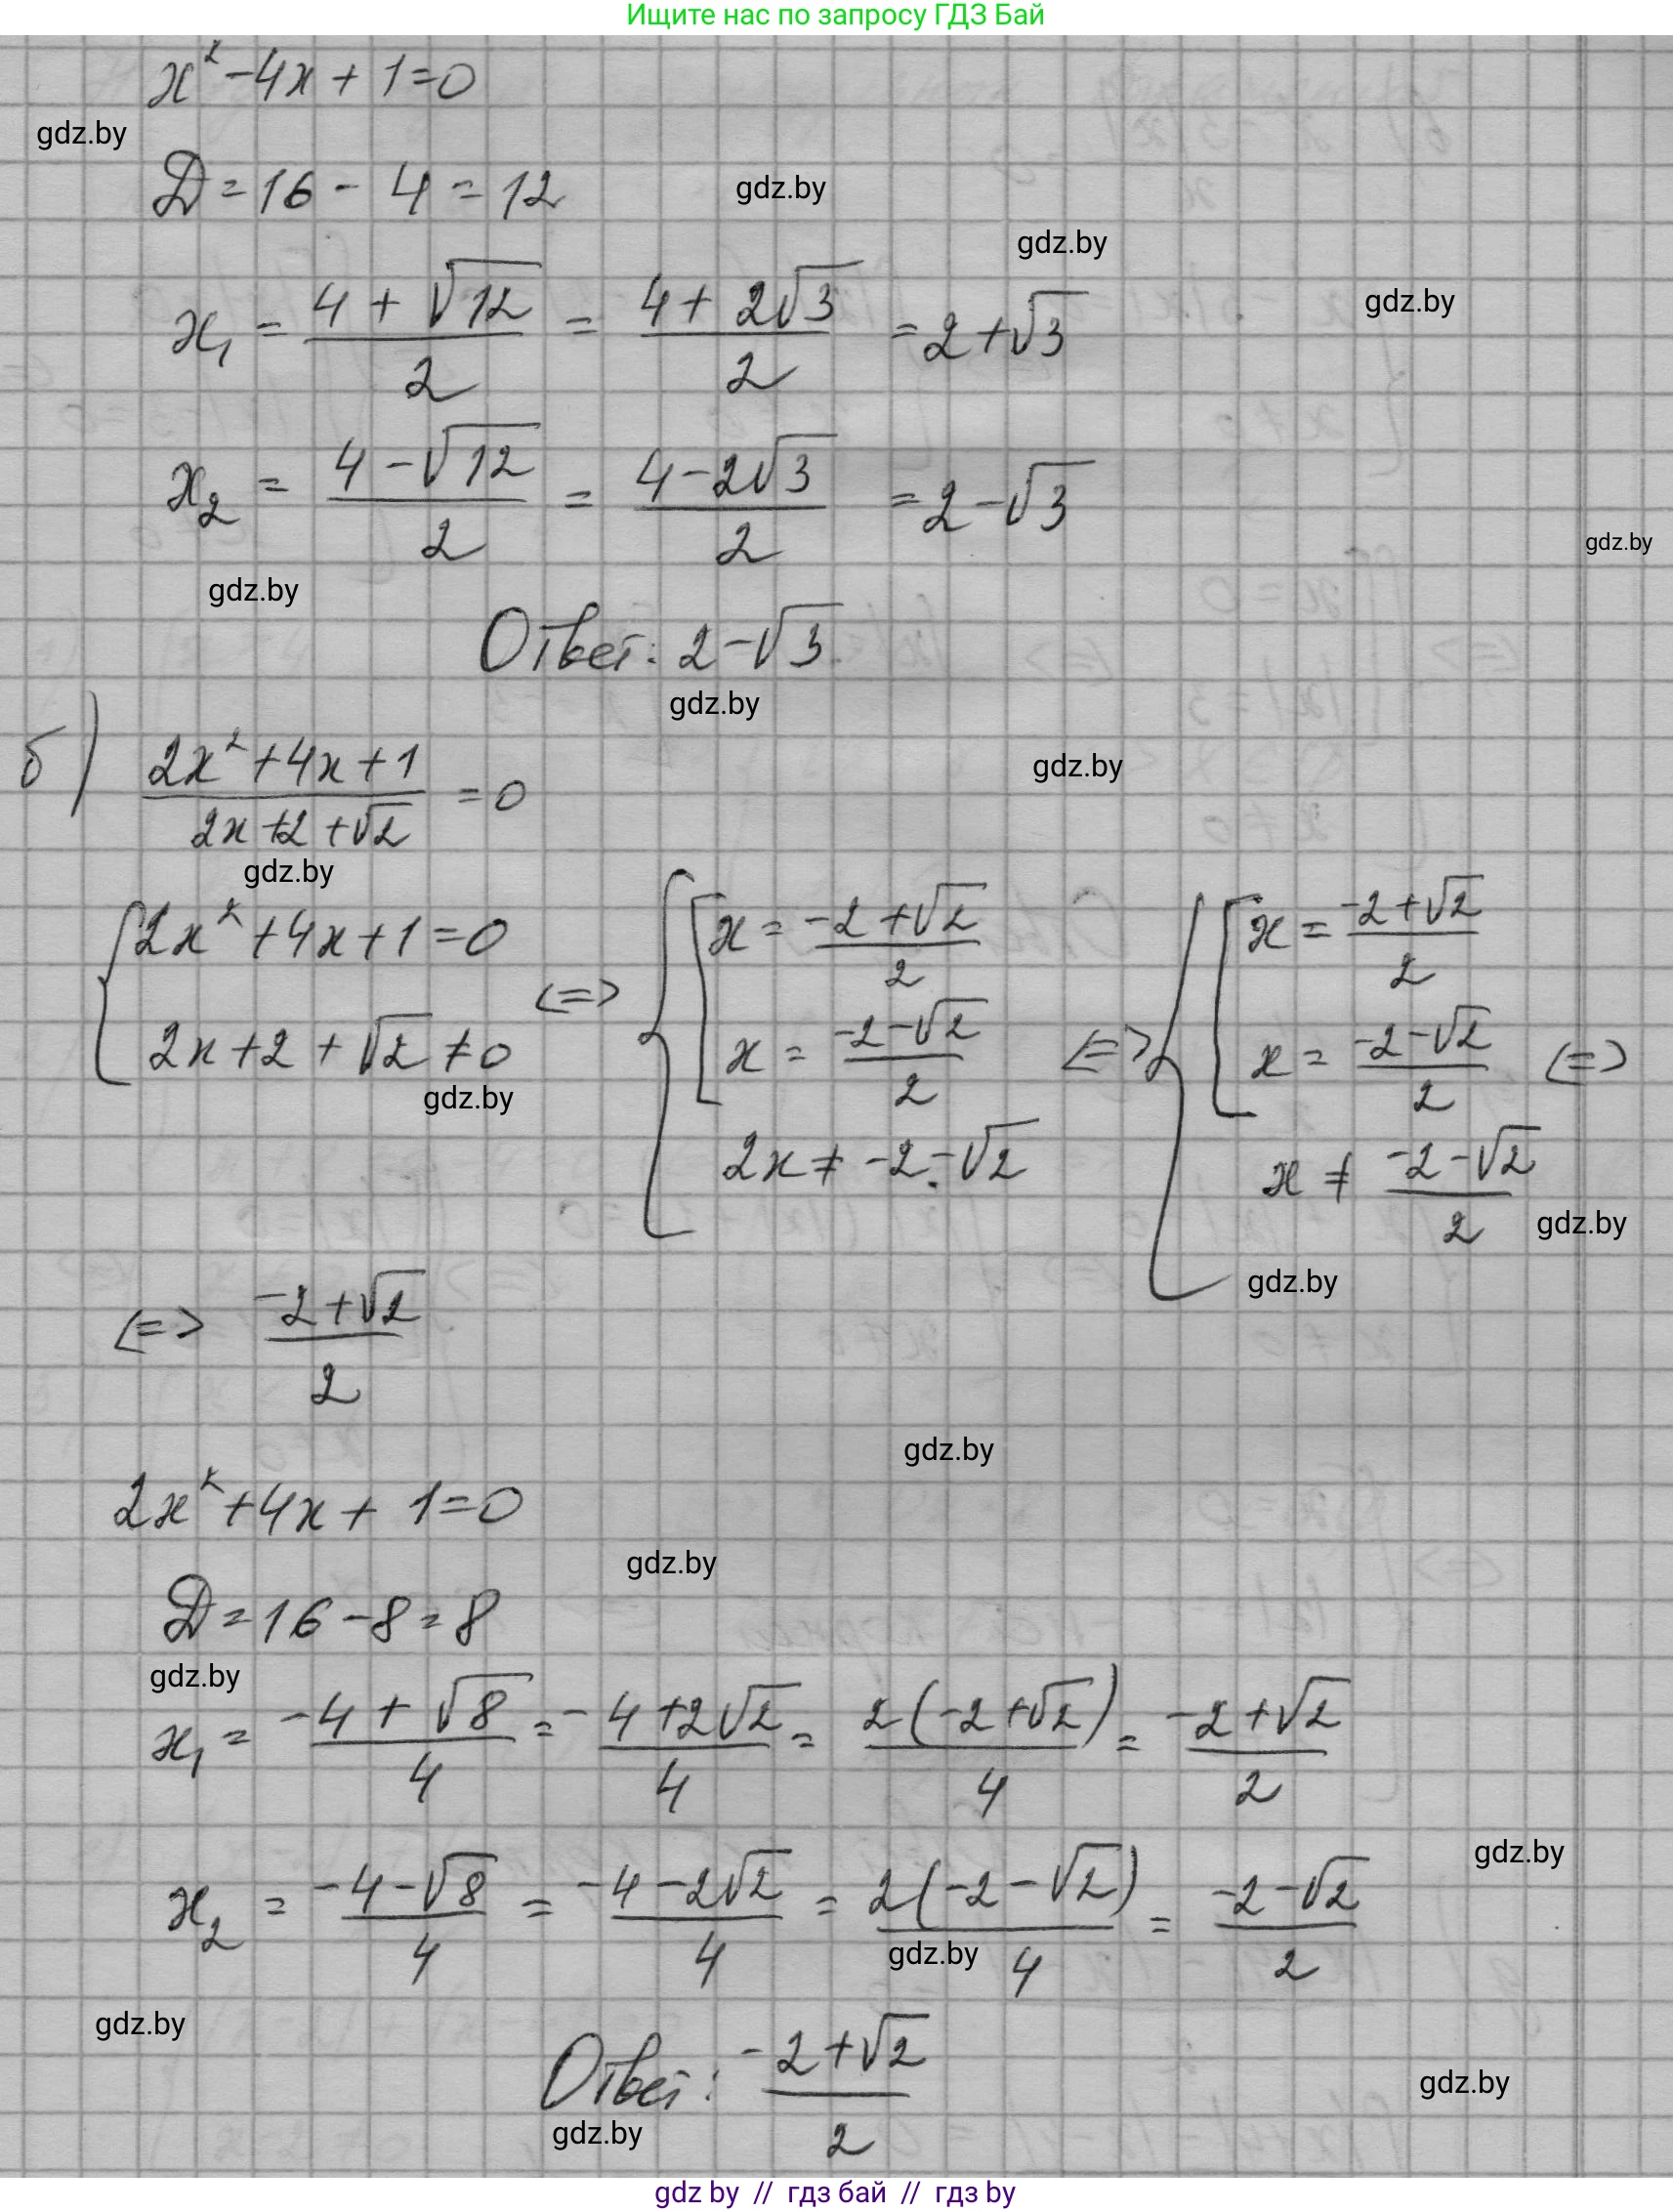 Ищите нас по запросу ГДЗ Бай
x² - 4x + 1 = 0
gdz.by
D = 16 - 4 = 12
gdz.by
gdz.by
gdz.by
x₁ = (4 + √12)/2 = (4 + 2√3)/2 = 2 + √3
x₂ = (4 - √12)/2 = (4 - 2√3)/2 = 2 - √3
gdz.by
gdz.by
Ответ: 2 - √3.
gdz.by
б) (2x² + 4x + 1)/(2x + 2 + √2) = 0
gdz.by
gdz.by
{ 2x² + 4x + 1 = 0
2x + 2 + √2 ≠ 0
<=> { [ x = (-2 + √2)/2
x = (-2 - √2)/2
2x ≠ -2 - √2
<=> { [ x = (-2 + √2)/2
x = (-2 - √2)/2
x ≠ (-2 - √2)/2
<=>
gdz.by
gdz.by
gdz.by
<=> (-2 + √2)/2
gdz.by
2x² + 4x + 1 = 0
gdz.by
D = 16 - 8 = 8
gdz.by
x₁ = (-4 + √8)/4 = (-4 + 2√2)/4 = 2(-2 + √2)/4 = (-2 + √2)/2
gdz.by
x₂ = (-4 - √8)/4 = (-4 - 2√2)/4 = 2(-2 - √2)/4 = (-2 - √2)/2
gdz.by
gdz.by
Ответ: (-2 + √2)/2
gdz.by
gdz.by
gdz by // гдз бай // гдз by